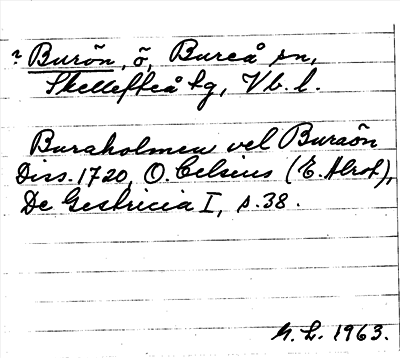 ? Burön, ö, Bureå sn,
Skellefteå tg, Vb. l.
Buraholmen vel Buraön
Diss. 1720, O. Celsius (E. Alrot),
De Gestricia I, s. 38.
G. L. 1963.